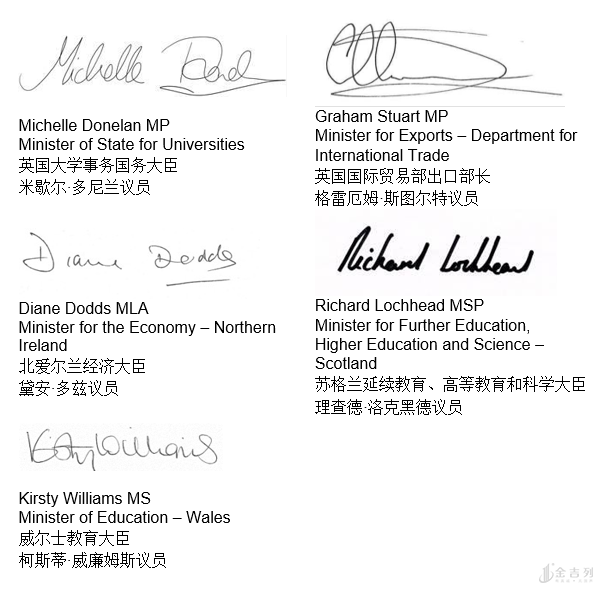 Michelle Donelan
Michelle Donelan MP
Minister of State for Universities
英国大学事务国务大臣
米歇尔·多尼兰议员
Graham Stuart MP
Minister for Exports – Department for
International Trade
英国国际贸易部出口部长
格雷厄姆·斯图尔特议员
Diane Dodds
Diane Dodds MLA
Minister for the Economy – Northern
Ireland
北爱尔兰经济大臣
黛安·多兹议员
Richard Lochhead
Richard Lochhead MSP
Minister for Further Education,
Higher Education and Science –
Scotland
苏格兰延续教育、高等教育和科学大臣
理查德·洛克黑德议员
Kirsty Williams
Kirsty Williams MS
Minister of Education – Wales
威尔士教育大臣
柯斯蒂·威廉姆斯议员
金吉列